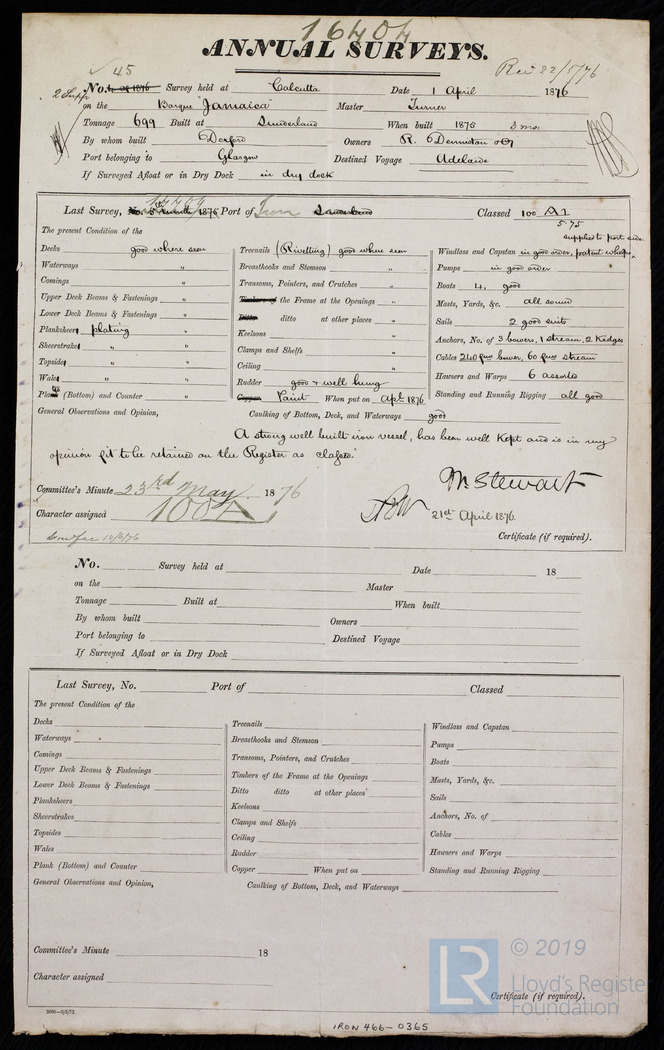 16404
ANNUAL SURVEYS.
45
Rec 22/5/76
No. 4 of 1876 Survey held at Calcutta Date 1 April 1876
on the Barque "Jamaica" Master Turner
Tonnage 699 Built at Sunderland When built 1875 3 mo.
By whom built Doxford Owners R. Denniston & Co
Port belonging to Glasgow Destined Voyage Adelaide
If Surveyed Afloat or in Dry Dock in dry dock
Last Survey, No. 1875 Port of Iron Sunderland Classed 100 A1
5 75
The present Condition of the
supplied to port side
Decks good where seen
Waterways "
Comings "
Upper Deck Beams & Fastenings "
Lower Deck Beams & Fastenings "
Planksheers plating
Sheerstrakes " "
Topsides " "
Wales " "
Plank (Bottom) and Counter "
Treenails (Rivetting) good where seen
Breasthooks and Stemson "
Transoms, Pointers, and Crutches "
Timbers of the Frame at the Openings "
Ditto ditto at other places "
Keelsons "
Clamps and Shelfs "
Ceiling "
Rudder good & well hung
Copper Paint When put on Apl. 1876
Windlass and Capstan in good order, patent whelps
Pumps in good order
Boats 4, good
Masts, Yards, &c. all sound
Sails 2 good suits
Anchors, No. of 3 bowers, 1 stream, 2 Kedges
Cables 240 fms bower, 60 fms stream
Hawsers and Warps 6 assorted
Standing and Running Rigging all good
General Observations and Opinion, Caulking of Bottom, Deck, and Waterways good
A strong well built iron vessel, has been well kept and is in my
opinion fit to be retained on the Register as classed.
M. Stewart
Committee's Minute 23rd May 1876
21st April 1876
Character assigned 100A
Certificate (if required).
No. Survey held at Date 18
on the Master
Tonnage Built at When built
By whom built Owners
Port belonging to Destined Voyage
If Surveyed Afloat or in Dry Dock
Last Survey, No. Port of Classed
The present Condition of the
Decks
Waterways
Comings
Upper Deck Beams & Fastenings
Lower Deck Beams & Fastenings
Planksheers
Sheerstrakes
Topsides
Wales
Plank (Bottom) and Counter
Treenails
Breasthooks and Stemson
Transoms, Pointers, and Crutches
Timbers of the Frame at the Openings
Ditto ditto at other places
Keelsons
Clamps and Shelfs
Ceiling
Rudder
Copper When put on
Windlass and Capstan
Pumps
Boats
Masts, Yards, &c.
Sails
Anchors, No. of
Cables
Hawsers and Warps
Standing and Running Rigging
General Observations and Opinion, Caulking of Bottom, Deck, and Waterways
Committee's Minute 18
Character assigned
Certificate (if required).
3000—5/5/72.
IRON 466-0365
LR
© 2019
Lloyd's Register
Foundation